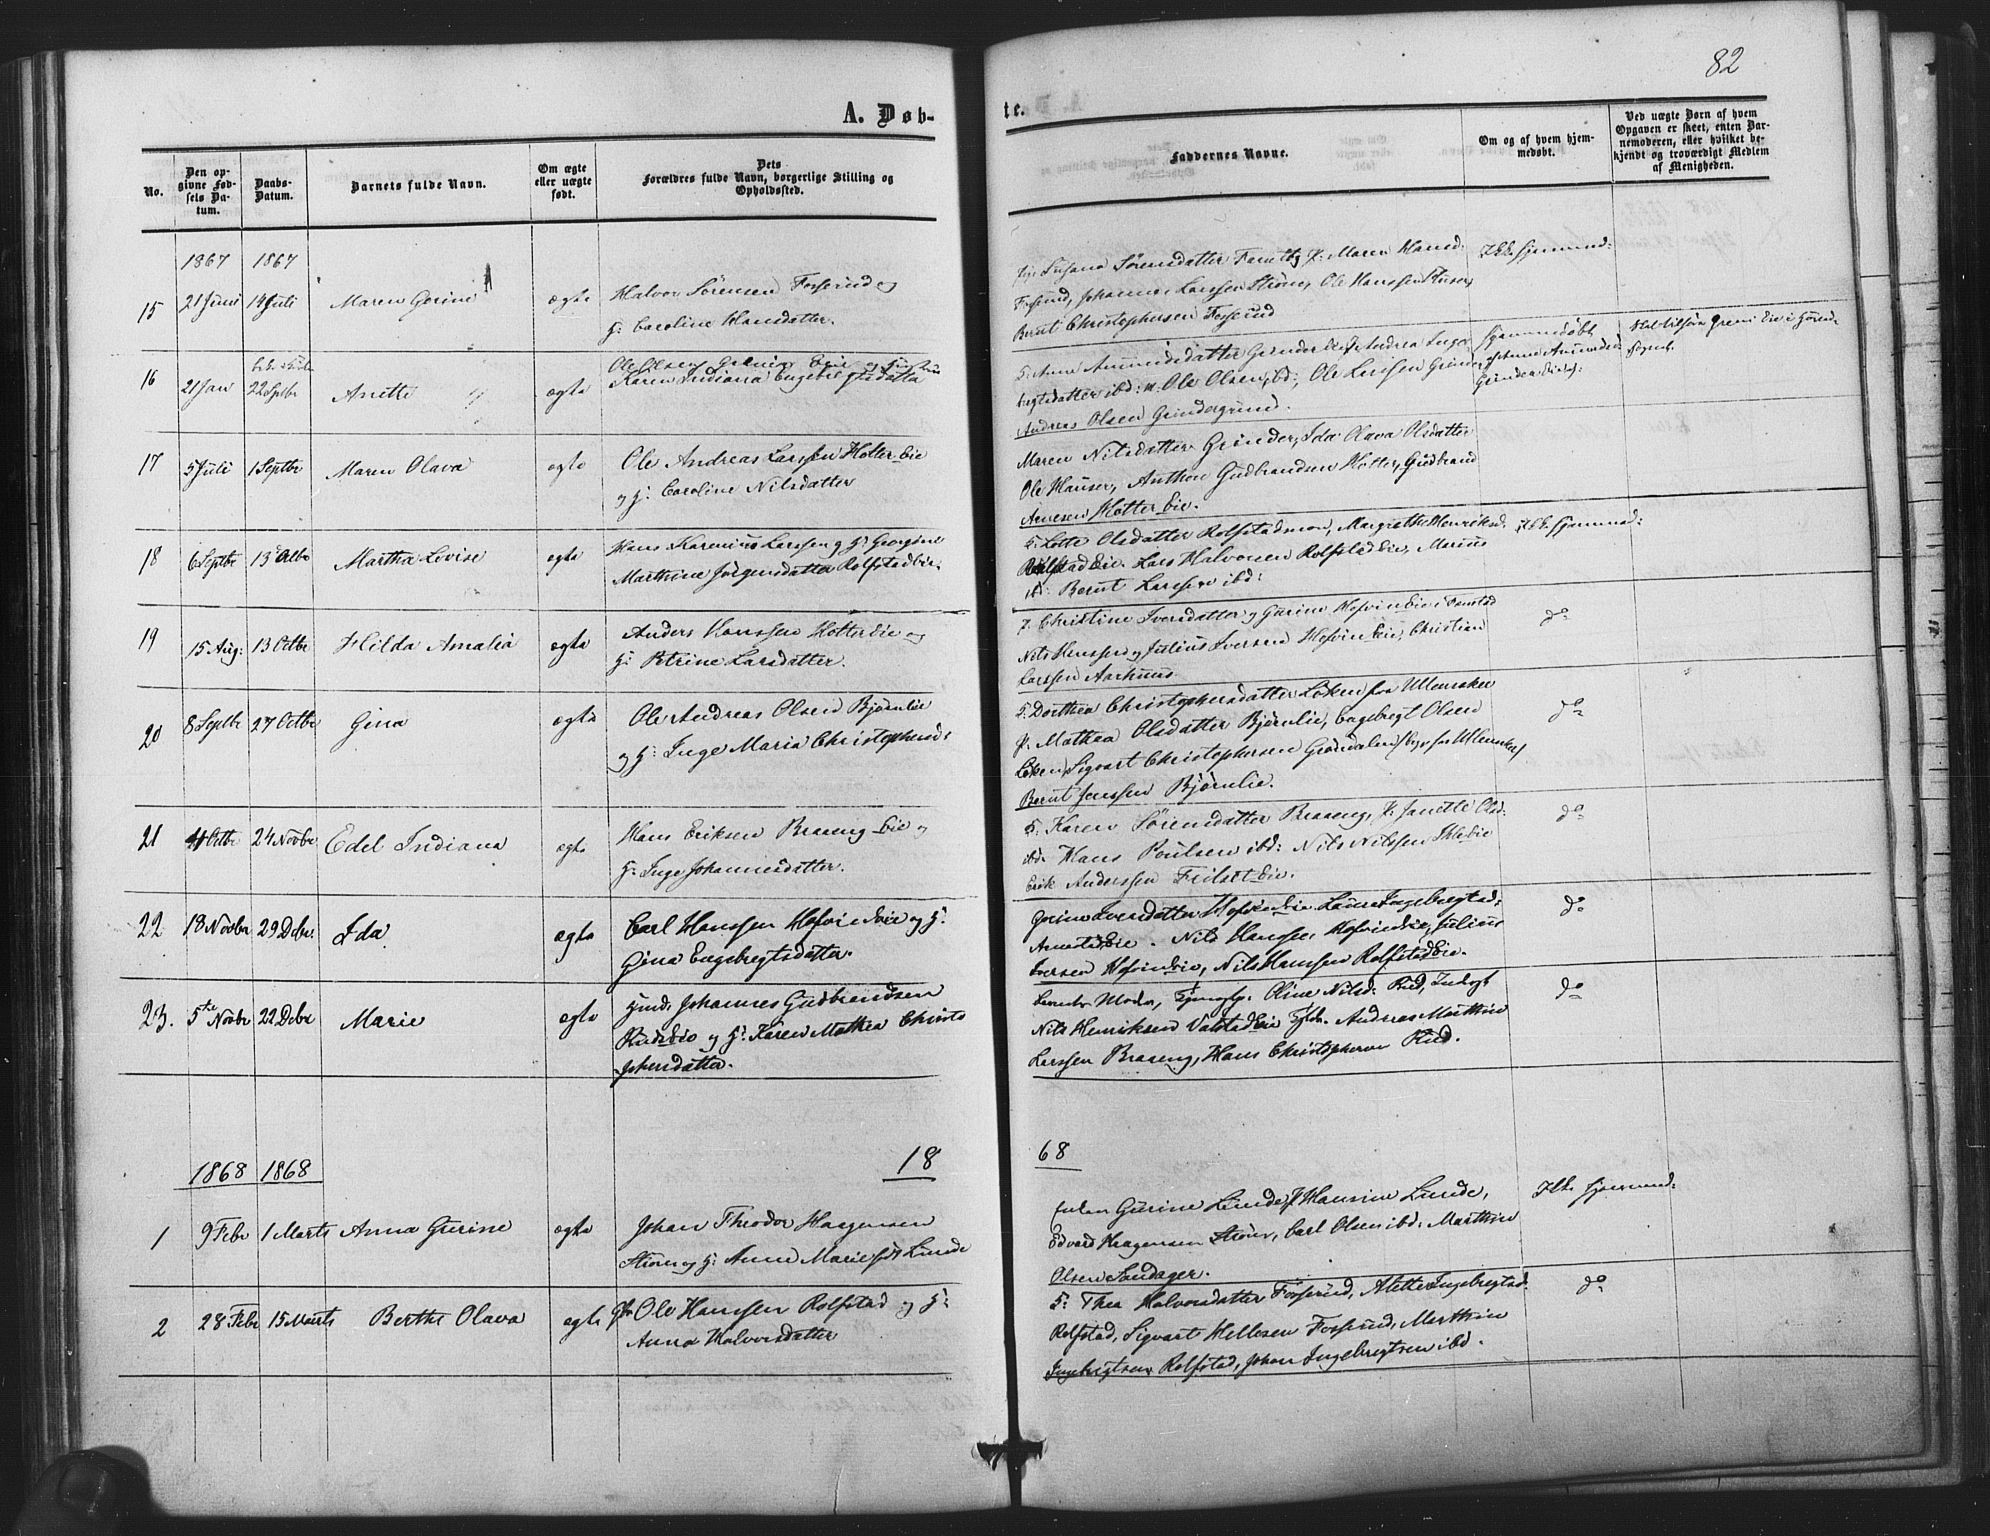 82
A. Døb-
te.
No.
Den op-
givne Fød-
sels Da-
tum.
Daabs-
Datum.
Barnets fulde Navn.
Om ægte
eller uægte
født.
Dets
Forældres fulde Navn, borgerlige Stilling og
Opholdssted.
Faddernes Navne.
Om og af hvem hjem-
medøbt.
Ved uægte Børn af hvem
Opgaven er skeet, enten Bar-
nemoderen, eller hvilket be-
kjendt og troværdigt Medlem
af Menigheden.
1867 1867
15 21 Juni 14 Juli Maren Gerine ægte Halvor Sörensen Fosserud og
H: Caroline Hansdatter.
Susana Sörensdatter P: Maren Hansd:
Fosserud, Johannes Larssen Ström, Ole Hanssen
Bernt Christophersen Fosserud
16 21 Jan 22 Septbr Anette ægte Ole Olsen
Karen Indiana Engebregtsdatter
Anne Amundsdatter Andrea Inge
bregtsdatter ibd: Ole Olsen ibd:, Ole Larssen Grinder
Andreas Olsen Grindergrund.
hjemmedöbt
af Anne Amundsd:
17 5 Juli 1 Septbr Maren Olava ægte Ole Andreas Larssen Hotter Eie
og H: Caroline Nilsdatter
Maren Nilsdatter Grinder, Ida Olava Olsdatter
Ole Hanser, Anthon Gudbrandsen Hotter, Gudbrand
Arnesen Hotter Eie.
18 6 Septbr 13 Octbr Martha Lovise ægte Hans Karenius Larssen og H: Georgine
Marthine Jörgensdatter Rolfstadeie.
H: Lotte Olsdatter Rolfstadmoen, Margrethe Henriksd.
Rolfstadeie. Lars Halvorsen Rolfstadeie, Marius
ibd: Bernt Larssen ibd:
Ikke hjemmed:
19 15 Aug: 13 Octbr Hilda Amalia ægte Anders Hanssen Hotter Eie og
H: Petrine Larsdatter.
P. Christine Iversdatter og Gurine Hofvindeie
Nils Hanssen og Julius Iversen Hofvindeie, Christian
Larssen Aarhuus
do
20 8 Septbr 27 Octbr Gina ægte Ole Andreas Olsen Björnlie
og H: Inge Maria Christophersd:
H: Dorthea Christophersdatter Löken fra Ullensaker
P. Mathea Olsdatter Björnlie, Engebregt Olsen
Löken, Sigvart Christophersen Gröndalen
Bernt Jenssen Björnlie.
do
21 Octbr 24 Novbr Edel Indiana ægte Hans Eriksen Braaeng Eie og
H: Inge Johannesdatter.
H: Karen Sörensdatter Braaeng, P. Janette Olsd:
ibd. Hans Poulsen ibd: Nils Nilssen
Erik Anderssen Eie.
do
22 18 Novbr 29 Debr. Ida ægte Carl Hanssen Hofvindeie og H:
Gina Engebregtsdatter.
Gurine Iversdatter Hofvindeie Laura Ingebregtsd:
Arnestadeie. Nils Hanssen Hofvindeie, Julius
Iversen Hofvindeie, Nils Hanssen Rolfstadeie.
do
23. 5te Novbr 22 Debr Marie ægte Johannes Gudbrandsen
Rudseie og H: Karen Mathea Christo
phersdatter.
Barnets Moder, Oline Nilsd: Rud, Indregt
Nils Henriksen Valstadeie Andreas Marthin
Larssen Braaeng, Hans Christophersen Rud.
do
1868 1868
18
68
1 9 Febr 1 Marts Anna Gurine ægte Johan Theodor Haagensen
Strøm og H: Anne Marie Lunde
Enken Gurine Lunde, P Hansine Lunde,
Edvard Haagensen Strøm, Carl Olsen ibd: Marthin
Olsen Sandager.
Ikke hjemmed:
2 28 Febr 15 Marts Berthe Olava ægte Ole Hanssen Rolfstad og H:
Anna Halvorsdatter
H: Thea Halvorsdatter Fosserud, Alette Ingebregtsd:
Rolfstad, Sigvart Hellesen Fosserud, Marthin
Ingebrigtsen Rolfstad, Johan Ingebrigtsen ibd.
do